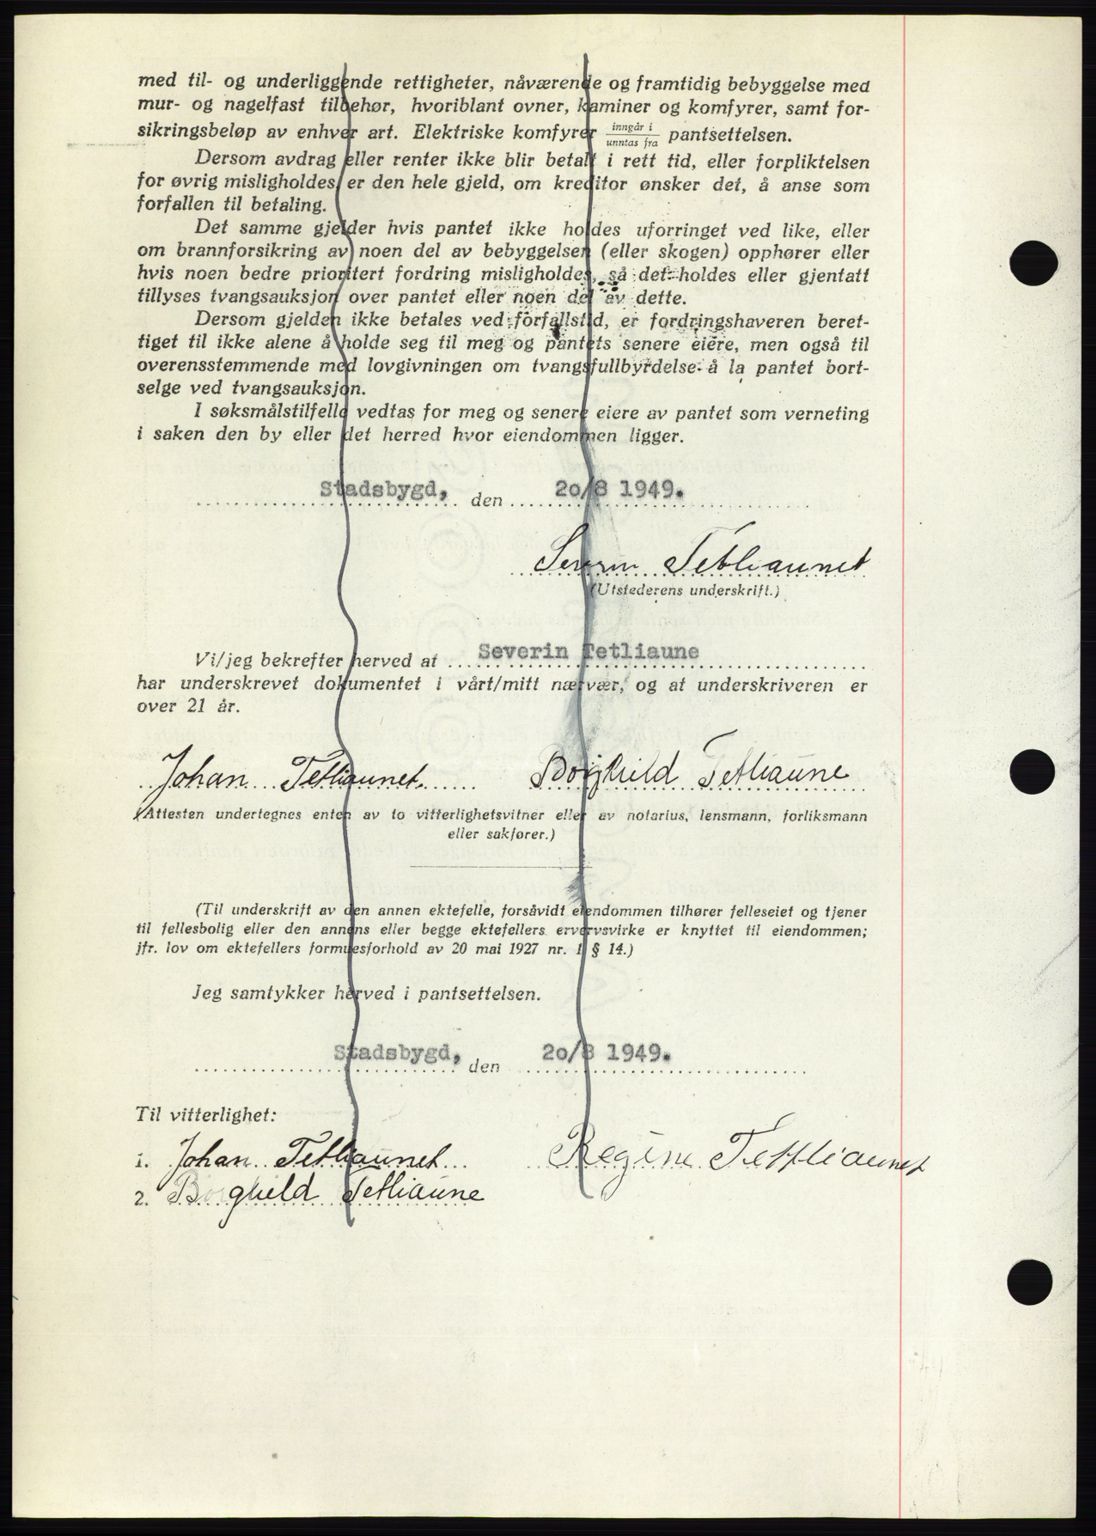 med til- og underliggende rettigheter, nåværende og framtidig bebyggelse med
mur- og nagelfast tilbehør, hvoriblant ovner, kaminer og komfyrer, samt for-
sikringsbeløp av enhver art. Elektriske komfyrer inngår i / unntas fra pantsettelsen.
Dersom avdrag eller renter ikke blir betalt i rett tid, eller forpliktelsen
for øvrig misligholdes, er den hele gjeld, om kreditor ønsker det, å anse som
forfallen til betaling.
Det samme gjelder hvis pantet ikke holdes uforringet ved like, eller
om brannforsikring av noen del av bebyggelsen (eller skogen) opphører eller
hvis noen bedre prioritert fordring misligholdes, så det holdes eller gjentatt
tillyses tvangsauksjon over pantet eller noen del av dette.
Dersom gjelden ikke betales ved forfallstid, er fordringshaveren beret-
tiget til ikke alene å holde seg til meg og pantets senere eiere, men også til
overensstemmende med lovgivningen om tvangsfullbyrdelse å la pantet bort-
selge ved tvangsauksjon.
I søksmålstilfelle vedtas for meg og senere eiere av pantet som verneting
i saken den by eller det herred hvor eiendommen ligger.
Stadsbygd, den 2o/8 1949.
Severin Tetliaunet
(Utstederens underskrift.)
Vi/jeg bekrefter herved at Severin Tetliaune
har underskrevet dokumentet i vårt/mitt nærvær, og at underskriveren er
over 21 år.
Johan Tetliaunet Borghild Tetliaune
(Attesten undertegnes enten av to vitterlighetsvitner eller av notarius, lensmann, forliksmann
eller sakfører.)
(Til underskrift av den annen ektefelle, forsåvidt eiendommen tilhører felleseiet og tjener
til fellesbolig eller den annens eller begge ektefellers ervervsvirke er knyttet til eiendommen;
jfr. lov om ektefellers formuesforhold av 20 mai 1927 nr. 1 § 14.)
Jeg samtykker herved i pantsettelsen.
Stadsbygd, den 2o/8 1949.
Til vitterlighet:
1. Johan Tetliaunet Regine Tettliaunet
2. Borghild Tetliaune